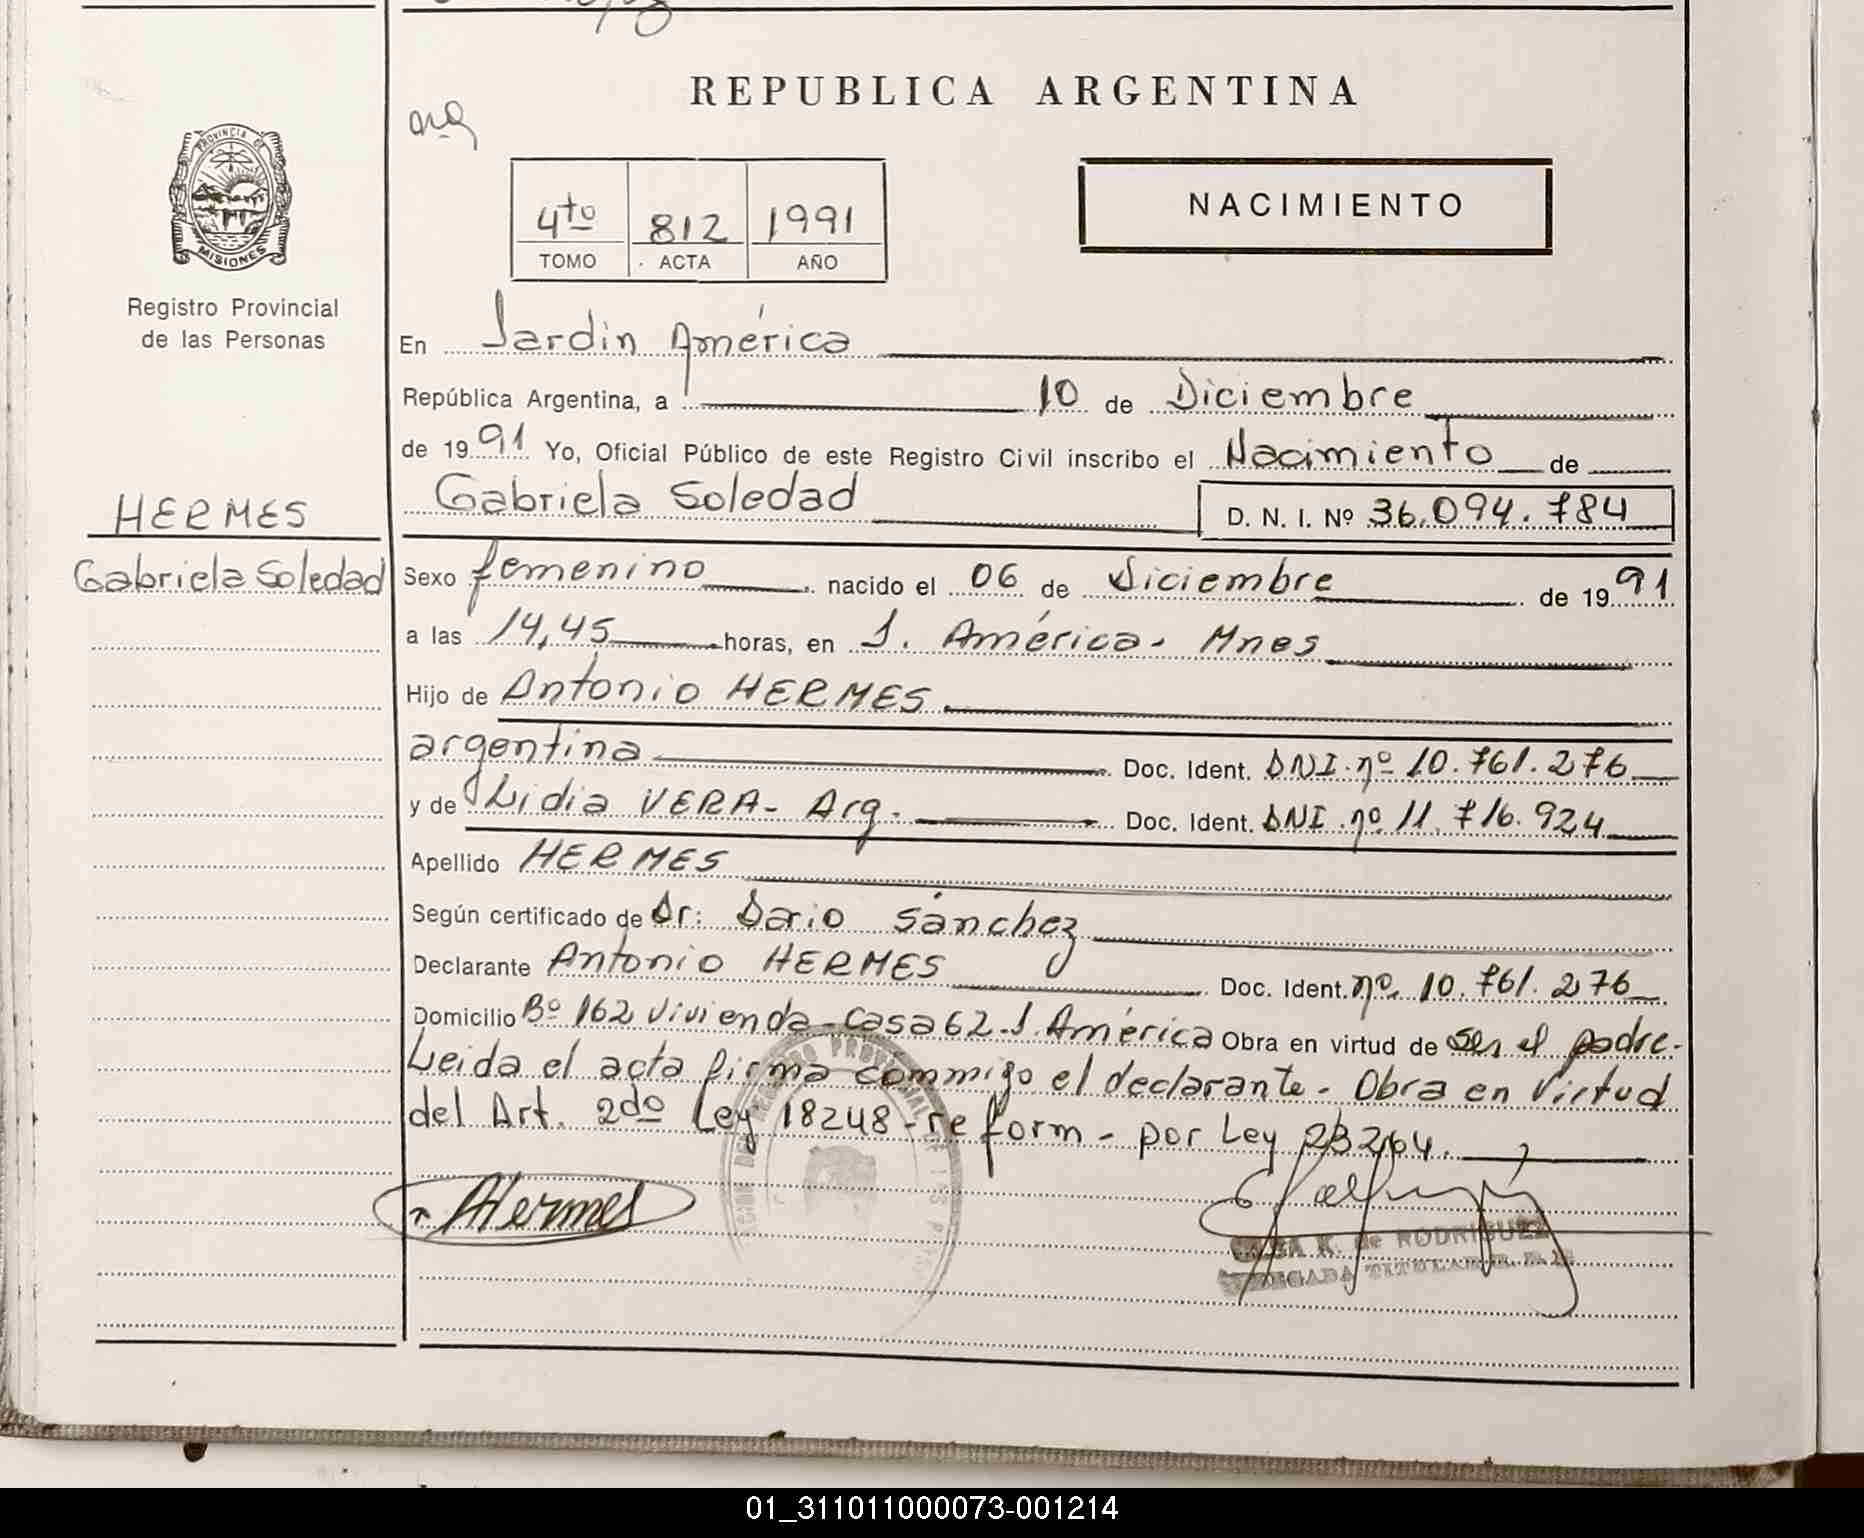 REPUBLICA ARGENTINA
arg
PROVINCIA DE
MISIONES
4to 812 1991
TOMO ACTA AÑO
NACIMIENTO
Registro Provincial
de las Personas
En Jardin América
República Argentina, a 10 de Diciembre
de 1991 Yo, Oficial Público de este Registro Civil inscribo el Nacimiento de
Gabriela Soledad D. N. I. Nº 36.094.784
HERMES
Gabriela Soledad
Sexo femenino nacido el 06 de Diciembre de 1991
a las 14,45 horas, en J. América- Mnes
Hijo de Antonio HERMES
argentina Doc. Ident. DNI. nº 10.761.276
y de Lidia VERA- Arg. Doc. Ident. DNI. nº 11.716.924
Apellido HERMES
Según certificado de Dr: Dario Sánchez
Declarante Antonio HERMES Doc. Ident. nº 10.761.276
Domicilio Bº 162 vivienda-casa 62-J. América Obra en virtud de ser el padre-
Leida el acta firma commigo el declarante- Obra en Virtud
del Art. 2do Ley 18248-reform- por Ley 23264.
AHermes
K. de RODRIGUEZ
DELEGADA TITULAR
01_311011000073-001214